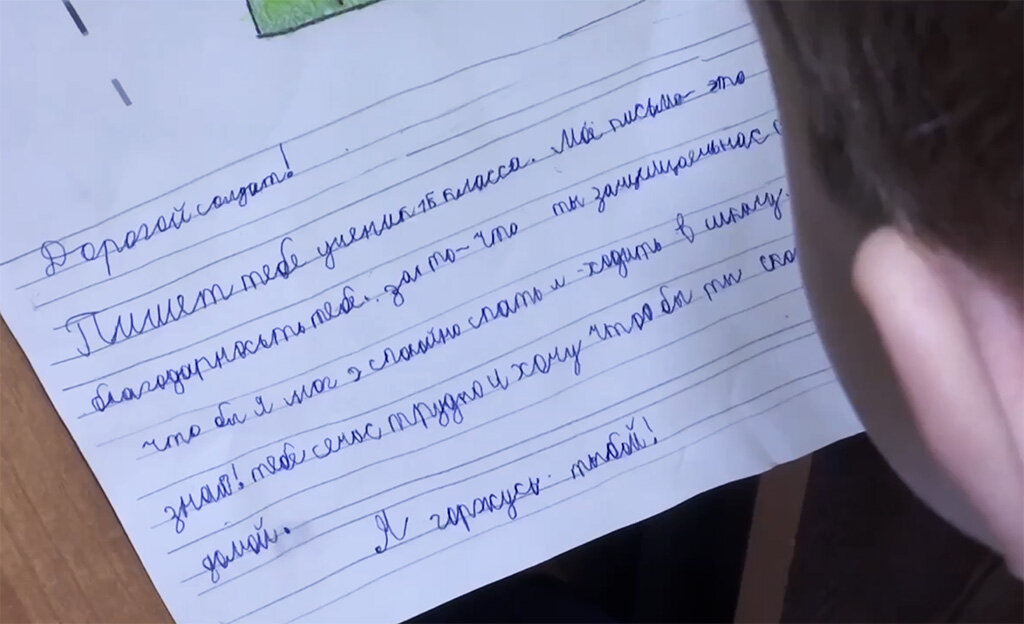 Дорогой солдат!
Пишет тебе ученик 1Б класса. Моё письмо- это
благодарность тебе. за то-что ты защищаешь нас
что бы я мог э спокойно спать и -ходить в школу.
знаю! тебе сейчас трудно и хочу что бы ты
домой. Я горжусь тыбой!